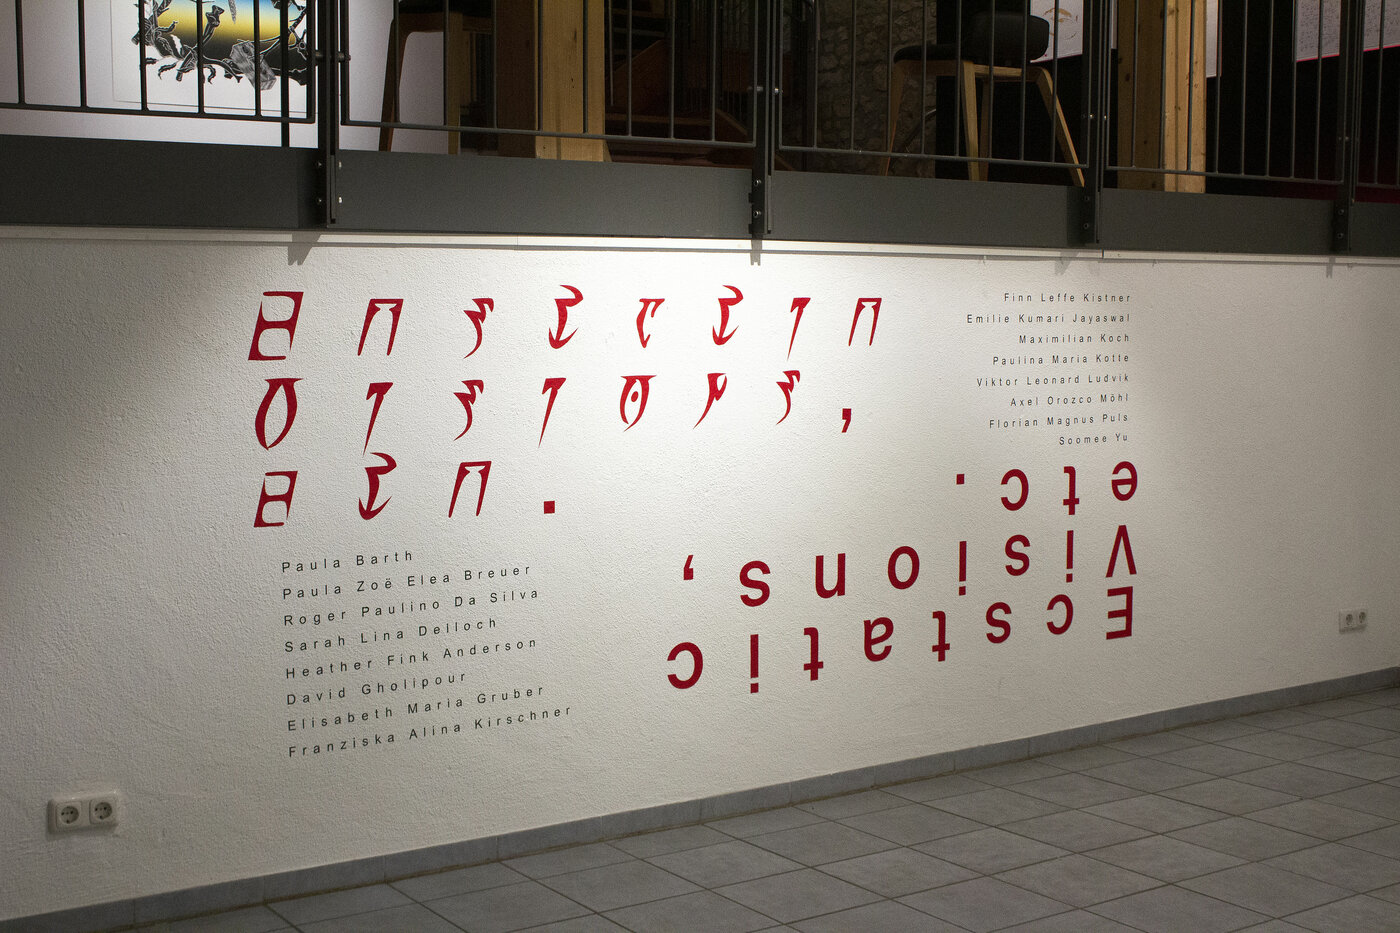 Finn Leffe Kistner
Emilie Kumari Jayaswal
Maximilian Koch
Paulina Maria Kotte
Viktor Leonard Ludvik
Axel Orozco Möhl
Florian Magnus Puls
Soomee Yu
Ecstatic
Visions,
etc.
Paula Barth
Paula Zoë Elea Breuer
Roger Paulino Da Silva
Sarah Lina Delloch
Heather Fink Anderson
David Gholipour
Elisabeth Maria Gruber
Franziska Alina Kirschner